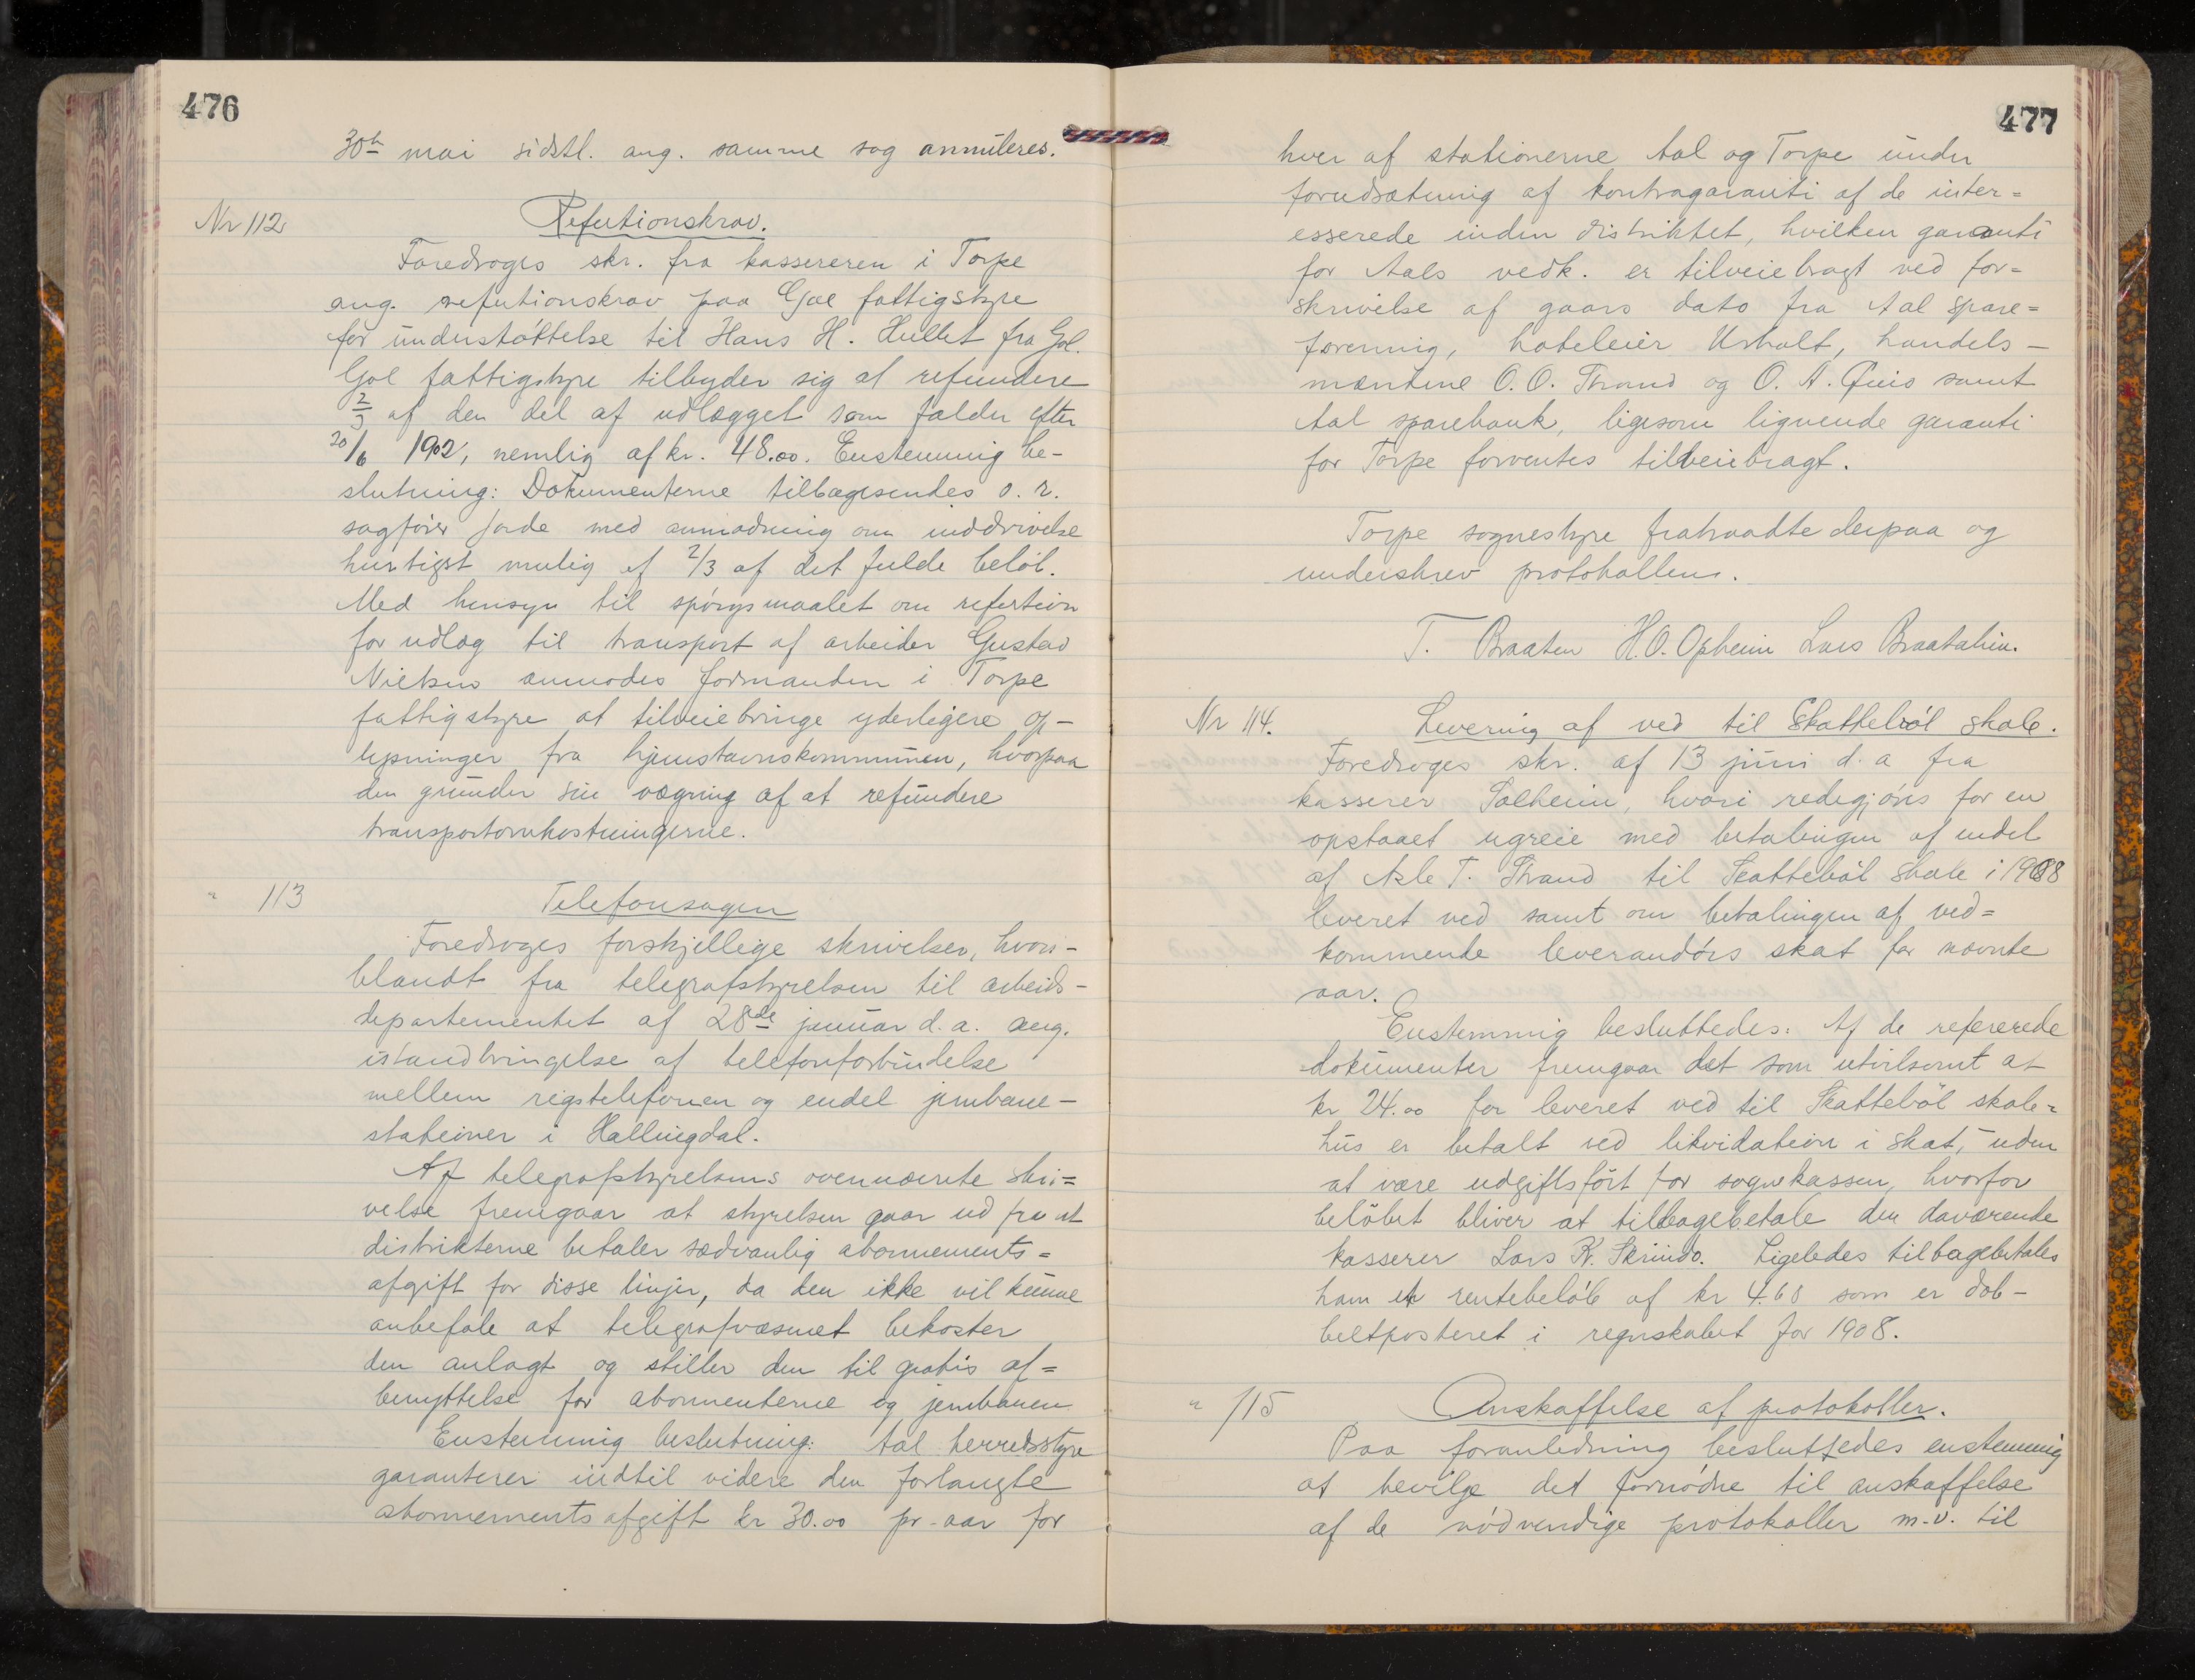 476
30th mai sidstl. ang. samme sag annuleres.
Nr 112 Refutionskrav.
Foredroges skr. fra kassereren i Torpe
ang. refutionskrav paa Gol fattigstyre
for understøttelse til Hans H. Hullet fra Gol.
Gol fattigstyre tilbyder sig at refundere
2/3 af den del af udlægget som falder efter
20/6 1902, nemlig af kr. 48.00. Enstemmig be-
slutning: Dokumenterne tilbagesendes o. r.
sagfører Jorde med anmodning om inddrivelse
hurtigst mulig af 2/3 af det fulde beløb.
Med hensyn til spørgsmaalet om refution
for udlæg til transport af arbeider Gustav
Nielsen anmodes formanden i Torpe
fattigstyre at tilveiebringe yderligere op-
lysninger fra hjemstavnskommunen, hvorpaa
den grunder sin vægring af at refundere
transportomkostningerne.
" 113 Telefonsagen
Foredroges forskjellige skrivelser, hvori-
blandt fra telegrafstyrelsen til arbeids-
departementet af 28de januar d. a. ang.
istandbringelse af telefonforbindelse
mellem rigstelefonen og endel jernbane-
stationer i Hallingdal.
Af telegrafstyrelsens ovennævnte skri=
velse fremgaar at styrelsen gaar ud fra at
distrikterne betaler sædvanlig abonnements=
afgift for disse linjer, da den ikke vil kunne
anbefale at telegrafvæsenet bekoster
den anlagt og stiller den til gratis af=
benyttelse for abonnenterne og jernbanen
Enstemmig beslutning: Aal herredsstyre
garanterer indtil videre den forlangte
abonnementsafgift kr 30.00 pr. aar for
477
hver af stationerne Aal og Torpe under
forudsætning af kontragaranti af de inter=
esserede inden distriktet, hvilken garanti
for Aals vedk. er tilveiebragt ved for=
skrivelse af gaars dato fra Aal spare=
forening, hoteleier Urhalt, handels-
mændene O. O. Strand og O. A. Quis samt
Aal sparebank, ligesom lignende garanti
for Torpe forventes tilveiebragt.
Torpe sognestyre fratraadte derpaa og
underskrev protokollen.
T. Braaten H. O. Opheim Lars Braatalien.
Nr 114. Levering af ved til Skattebøl skole.
Foredroges skr. af 13 juni d. a fra
kasserer Solheim, hvori redegjøres for en
opstaaet ugreie med betalingen af endel
af Asle T. Strand til Skattebøl skole i 1908
leveret ved samt om betalingen af ved=
kommende leverandørs skat for nævnte
aar.
Enstemmig besluttedes: Af de refererede
dokumenter fremgaar det som utvilsomt at
kr 24.00 for leveret ved til Skattebøl skole=
hus er betalt ved likvidation i skat, uden
at være udgiftsført for sognekassen, hvorfor
beløbet bliver at tilbagebetale den daværende
kasserer Lars K. Skrindo. Ligeledes tilbagebetales
ham et rentebeløb af kr 4.68 som er dob-
beltposteret i regnskabet for 1908.
" 115 Anskaffelse af protokoller.
Paa foranledning besluttedes enstemmig
at bevilge det fornødne til anskaffelse
af de nødvendige protokoller m.v. til